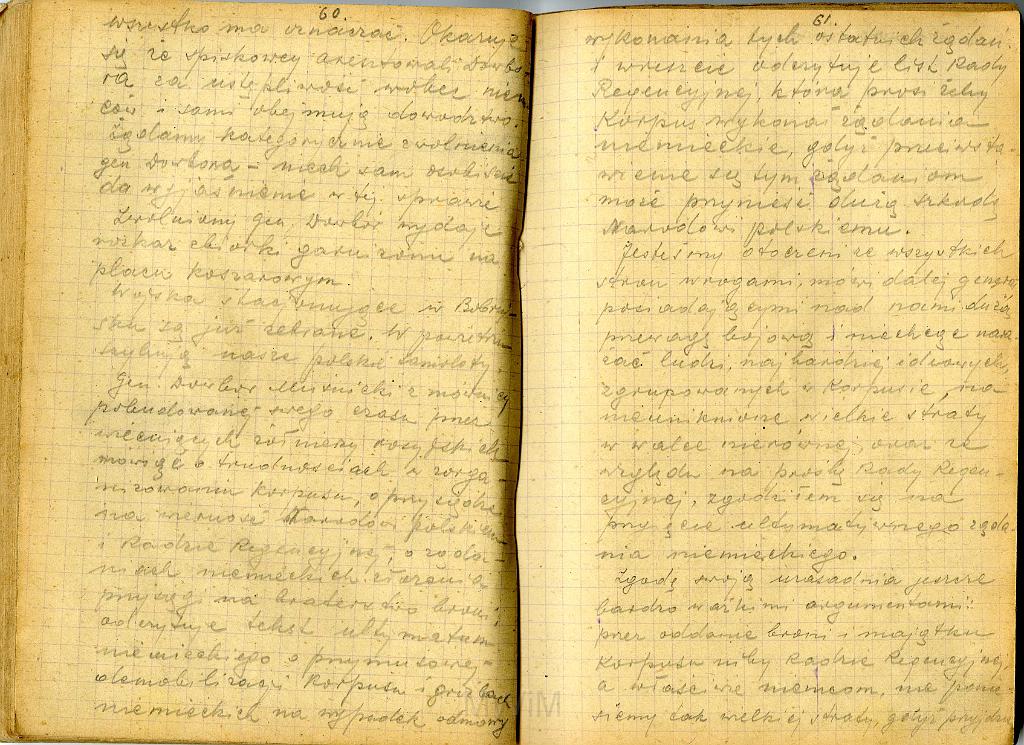 60.
wszystko ma oznaczać. Okazuje
się że spiskowcy aresztowali Dowbo-
ra za ustępliwość wobec niem-
ców i sami obejmują dowództwo.
Żądamy kategorycznie zwolnienia
gen Dowbora – niech sam osobiście
da wyjaśnienie w tej sprawie
Zwolniony gen. Dowbór wydaje
rozkaz zbiórki garnizonu na
placu koszarowym.
Wojska stacjonujące w Bobruj-
sku są już zebrane. W powietrzu
szybują nasze polskie samoloty.
Gen. Dowbór Muśnicki z mównicy
pobudowanej swego czasu przez
wiecujących żołnierzy rosyjskich
mówiąc o trudnościach w zorga-
nizowaniu Korpusu, o przysiędze
na wierność Narodowi polskiemu
i Radzie Regencyjnej, o żąda-
niach niemieckich złożenia
przysięgi na braterstwo broni,
odczytuje tekst ultymatum
niemieckiego o przymusowej
demobilizacji Korpusu i groźbach
niemieckich na wypadek odmowy
61.
wykonania tych ostatnich żądań
i wreszcie odczytuje list Rady
Regencyjnej, która prosi żeby
Korpus wykonał żądania
niemieckie, gdyż przeciwsta-
wienie się tym żądaniom
może przynieść dużą szkodę
Narodowi polskiemu.
Jesteśmy otoczeni ze wszystkich
stron wrogami, mówi dalej generał
posiadającymi nad nami dużą
przewagę bojową i niechcąc nara-
żać ludzi, najbardziej ideowych,
zgrupowanych w Korpusie, na
nieuniknione wielkie straty
w walce nierównej, oraz ze
względu na prośbę Rady Regen-
cyjnej, zgodziłem się na
przyjęcie ultymatywnego żąda-
nia niemieckiego.
Zgodę swoją uzasadnia jeszcze
bardzo ważkimi argumentami:
przez oddanie broni i majątku
Korpusu niby Radzie Regencyjnej,
a właściwie niemcom, nie ponie-
siemy tak wielkiej straty, gdyż przyjdzie